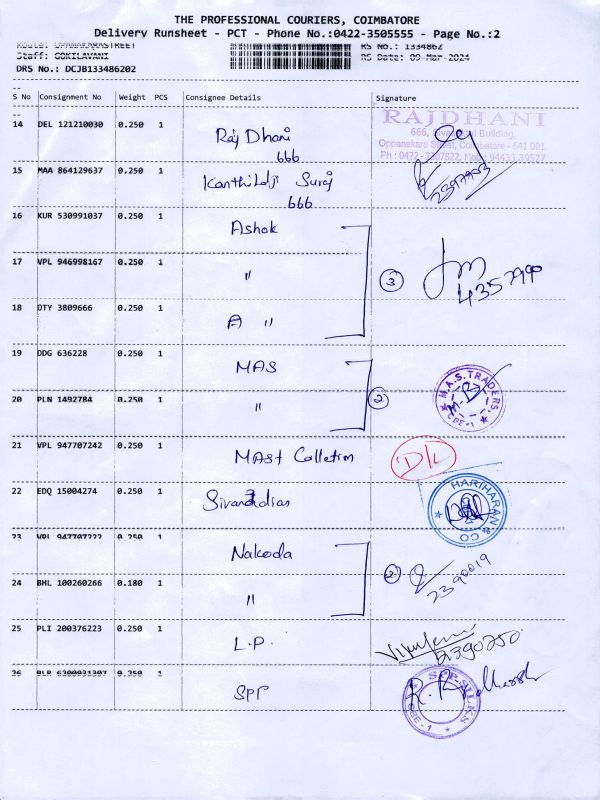 THE PROFESSIONAL COURIERS, COIMBATORE
Delivery Runsheet - PCT - Phone No.:0422-3505555 - Page No.:2
Route: OPANAKARASTREET RS No.: 1334862
Staff: GOKILAVANI RS Date: 09-Mar-2024
DRS No.: DCJB133486202
S No Consignment No Weight PCS Consignee Details Signature
14 DEL 121210030 0.250 1 Raj Dhani
666
RAJDHANI
Building,
Oppanakara Street, Coimbatore - 641 001.
15 MAA 864129637 0.250 1 Suraj
666
2397953
16 KUR 530991037 0.250 1 Ashok
17 VPL 946998167 0.250 1 "
3
18 DTY 3809666 0.250 1 A "
19 DDG 636228 0.250 1 MAS
20 PLN 1492784 0.250 1 "
2
M.A.S. TRADERS
CBE-1
21 VPL 947707242 0.250 1 MAST Colletion
D/L
22 EDQ 15004274 0.250 1
HARIHARAN & CO
23 VPL 947707222 0.250 1 Nakoda
2
2390019
24 BHL 100260266 0.180 1 "
25 PLI 200376223 0.250 1 L.P.
2390250
26 0.250 1 SPP
SPP SILKS
CBE-1